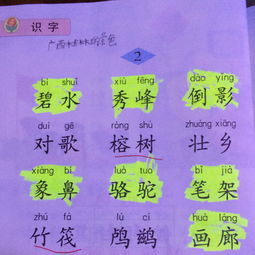 识字
广西
2
bì shuǐ xiù fēng dào yǐng
碧水 秀峰 倒影
duì gē róng shù zhuàng xiāng
对歌 榕树 壮乡
xiàng bí luò tuo bǐ jià
象鼻 骆驼 笔架
zhú fá lú cí huà láng
竹筏 鸬鹚 画廊